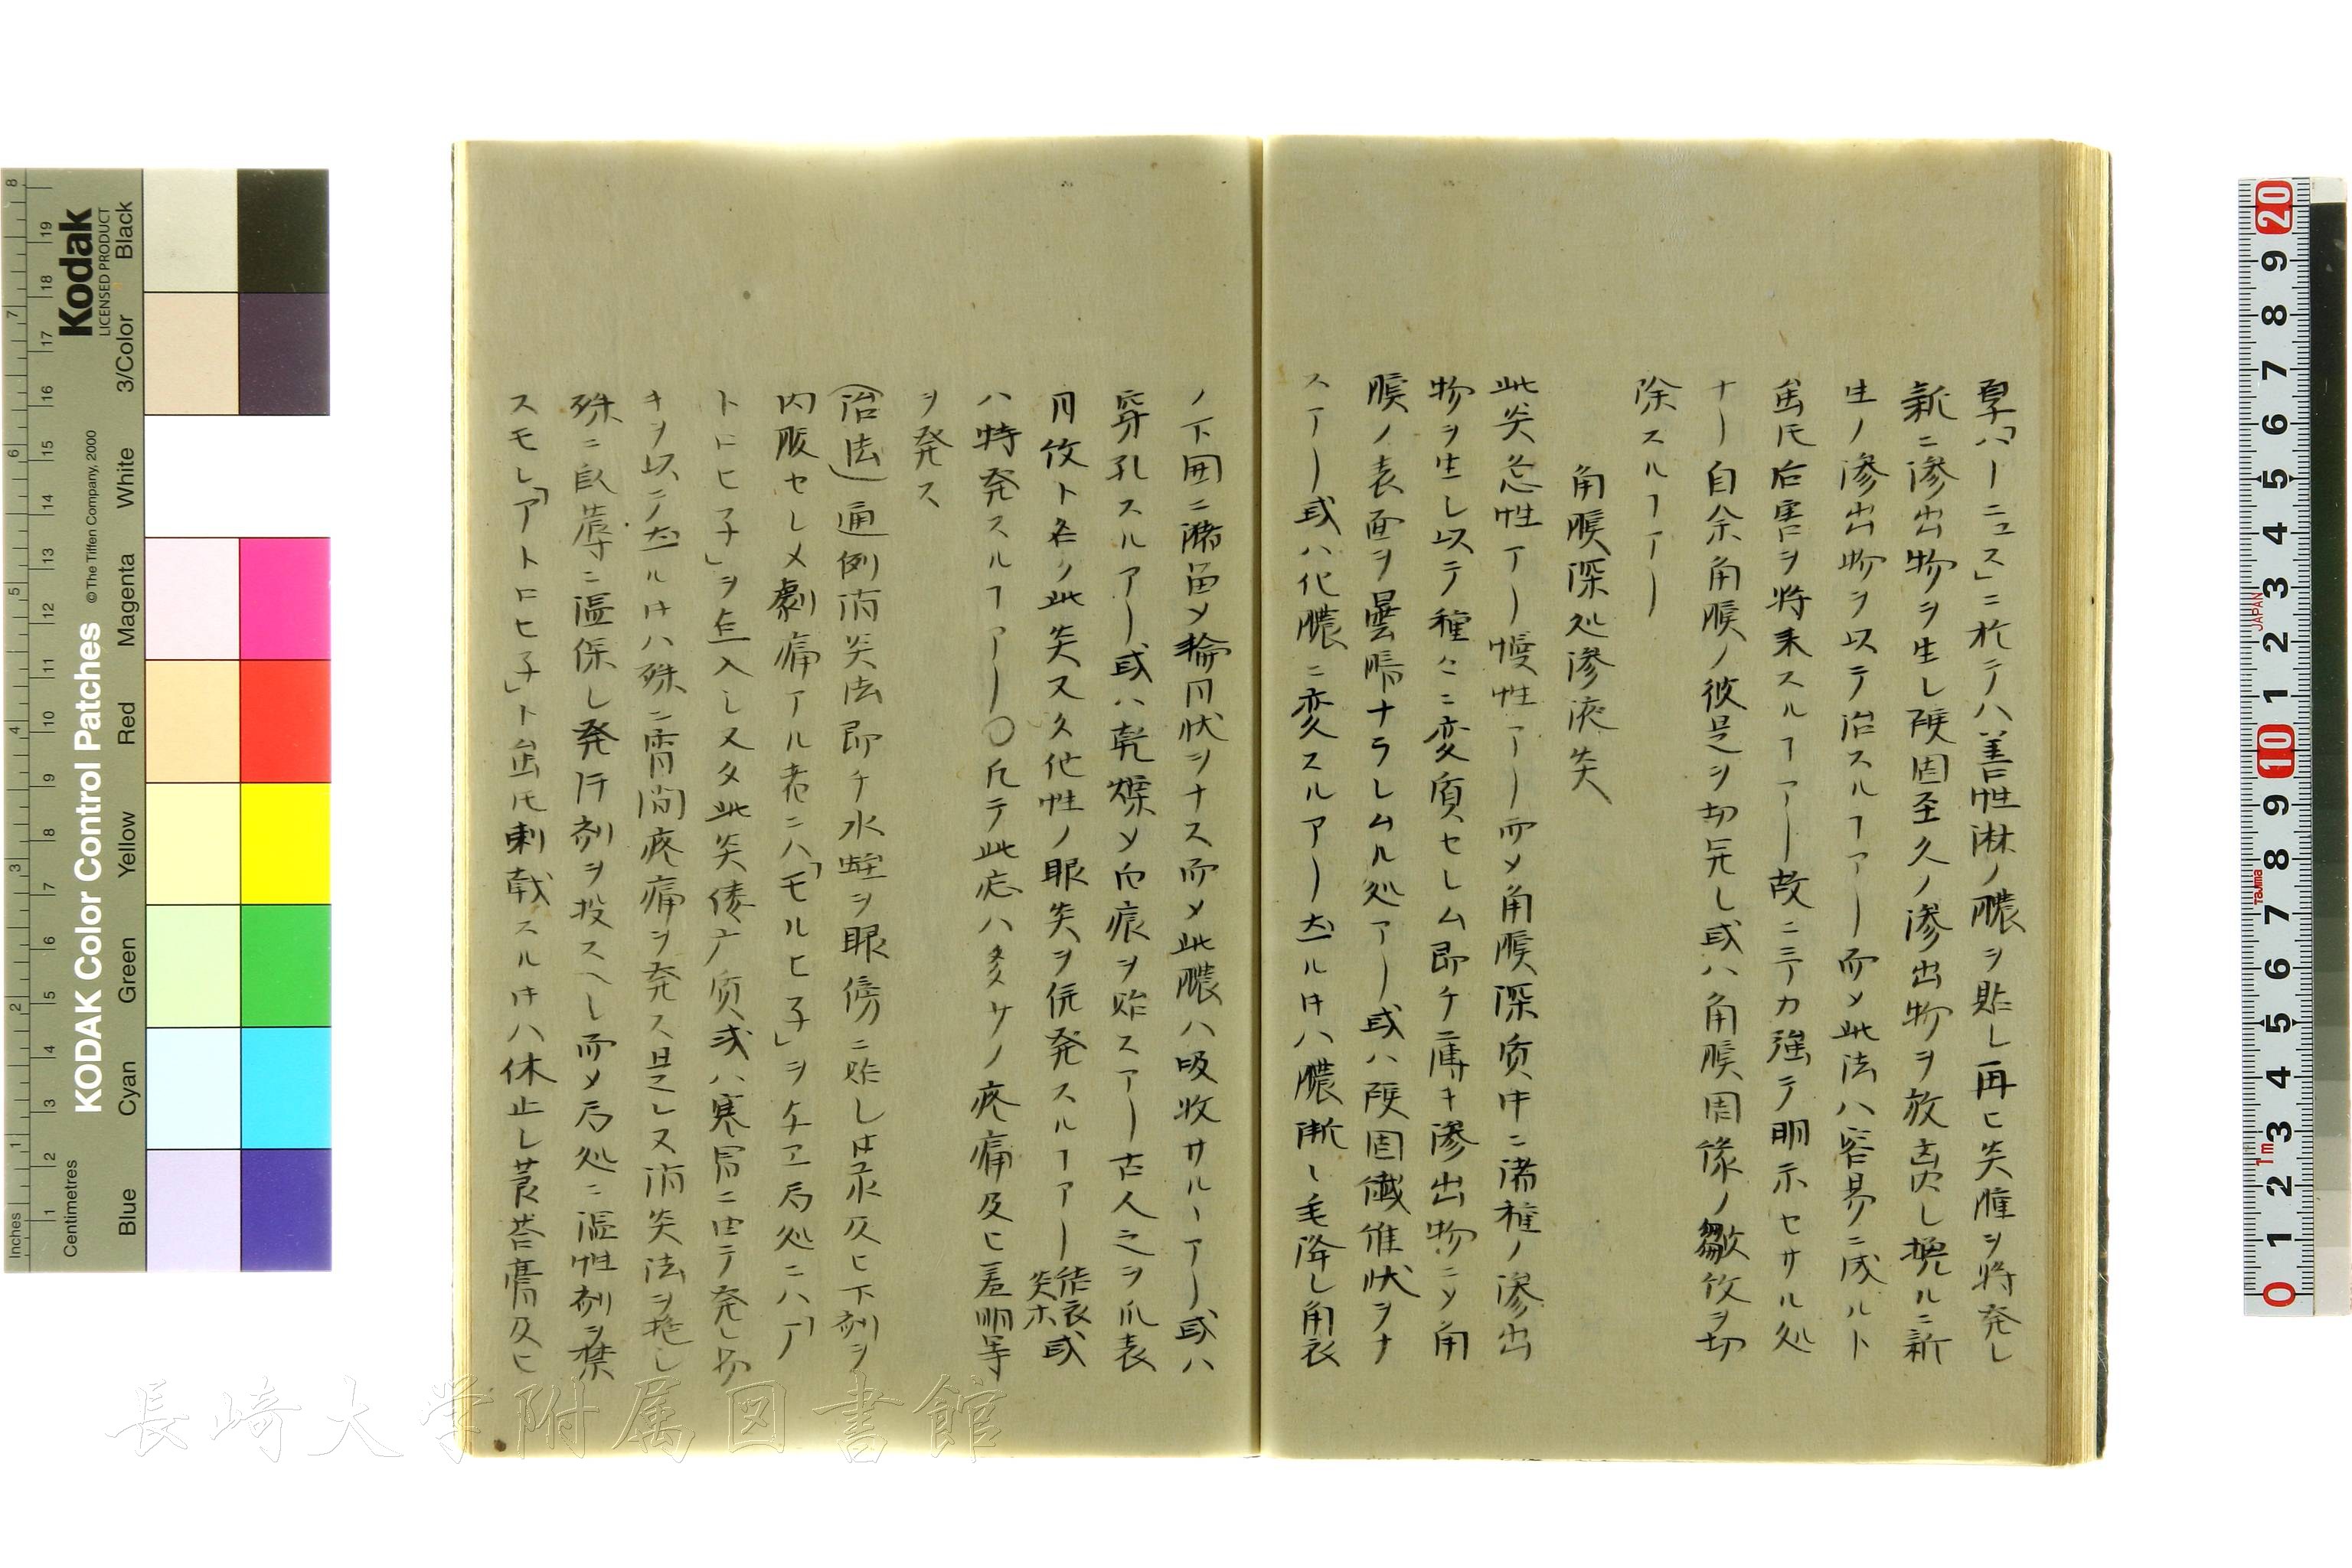 厚「パーニュス」ニ於テハ善性淋ノ膿ヲ貼し再ヒ炎腫ヲ将発し
新ニ滲出物ヲ生し硬固至久ノ滲出物ヲ放し換ルニ新
生ノ滲出物ヲ以テ治スルヿアリ而メ此法ハ容易ニ成ルト
虽𪜈后害ヲ将来スルヿアリ故ニ強テ明示セサル処
ナリ自余角膜ノ彼是ヲ切し或ハ角膜固像ノ皺攵ヲ切
除スルヿアリ
角膜深処滲液炎
此炎急性アリ慢性アリ而メ角膜深质中ニ諸種ノ滲出
物ヲ生し以テ種々ニ変質セしム即チ薄キ滲出物ニメ角
膜ノ表面ヲ曇暗ナラしムル処アリ或ハ硬固繊維状ヲナ
スアリ或ハ化膿ニ変スルアリ然ルトキハ膿漸し毛降し角衣
ノ下囲ニ潴畄メ輪月状ヲナス而メ此膿ハ吸收サルヽアリ或ハ
穿孔スルアリ或ハ乾燥メ白痕ヲ貽スアリ古人之ヲ爪表
月攵ト名ク此炎又久他性ノ眼炎ヲ併発スルヿアリ 結衣炎ホ 或
ハ特発スルヿアリ〇凡テ此症ハ多少ノ疼痛及ヒ羞明等
ヲ発ス
(治法)通例消炎法即チ水蛭ヲ眼傍ニ貼し甘汞及ヒ下剤ヲ
内服セしメ劇痛アル者ニハ「モルヒ子」ヲ与ヱ局処ニハ「ア
トロヒ子」ヲ点入し又タ此炎偻广质或ハ寒冒ニ由テ発し易
キヲ以テ然ルトキハ殊ニ宵间疼痛ヲ発ス是レ又消炎法ヲ施し
殊ニ臥蓐ニ温保し発汗剤ヲ投スヘし而メ局処ニ温性剤ヲ禁
スモし「アトロヒ子」ト虽𪜈刺戟スルトキハ休止し莨菪膏及ヒ
長崎大学附属図書館
Kodak
LICENSED PRODUCT
KODAK Color Control Patches
© The Tiffen Company, 2000
Inches
Centimetres
Blue
Cyan
Green
Yellow
Red
Magenta
White
3/Color
Black
JAPAN
Tajima
1m